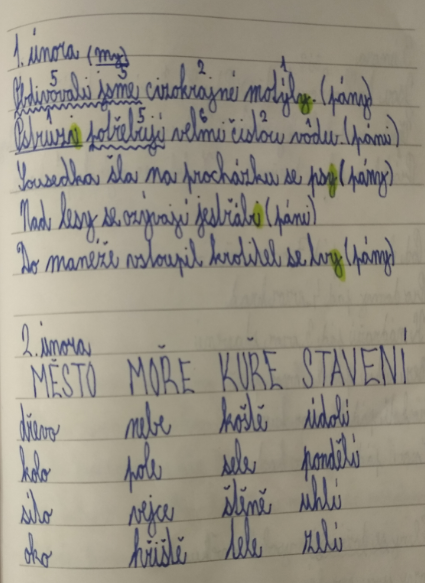 1. února (my)
5 3 2 1
Obdivovali jsme cizokrajné motýly. (pány)
1 5 6 2
Pstruzi potřebují velmi čistou vodu. (páni)
Sousedka šla na procházku se psy (pány)
Nad lesy se ozývají jestřábi (páni)
Do manéže vstoupil krotitel se lvy (pány)
2. února
MĚSTO MOŘE KUŘE STAVENÍ
dřevo nebe koště údolí
kolo pole sele pondělí
silo vejce štěně uhlí
oko hřiště tele zelí